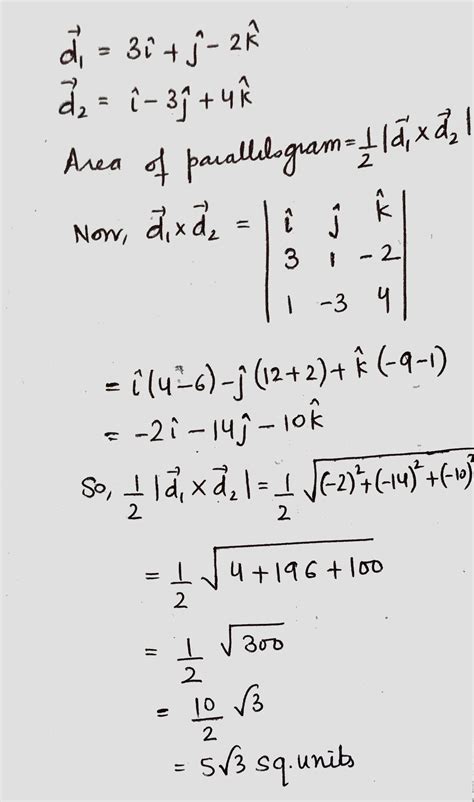 d⃗₁ = 3î + ĵ - 2k̂
d⃗₂ = î - 3ĵ + 4k̂
Area of parallelogram = 1/2 |d⃗₁ × d⃗₂|
Now, d⃗₁ × d⃗₂ = | î ĵ k̂ |
3 1 -2
1 -3 4
= î(4-6) - ĵ(12+2) + k̂(-9-1)
= -2î - 14ĵ - 10k̂
So, 1/2 |d⃗₁ × d⃗₂| = 1/2 √((-2)² + (-14)² + (-10)²)
= 1/2 √(4+196+100)
= 1/2 √300
= 10/2 √3
= 5√3 sq.units